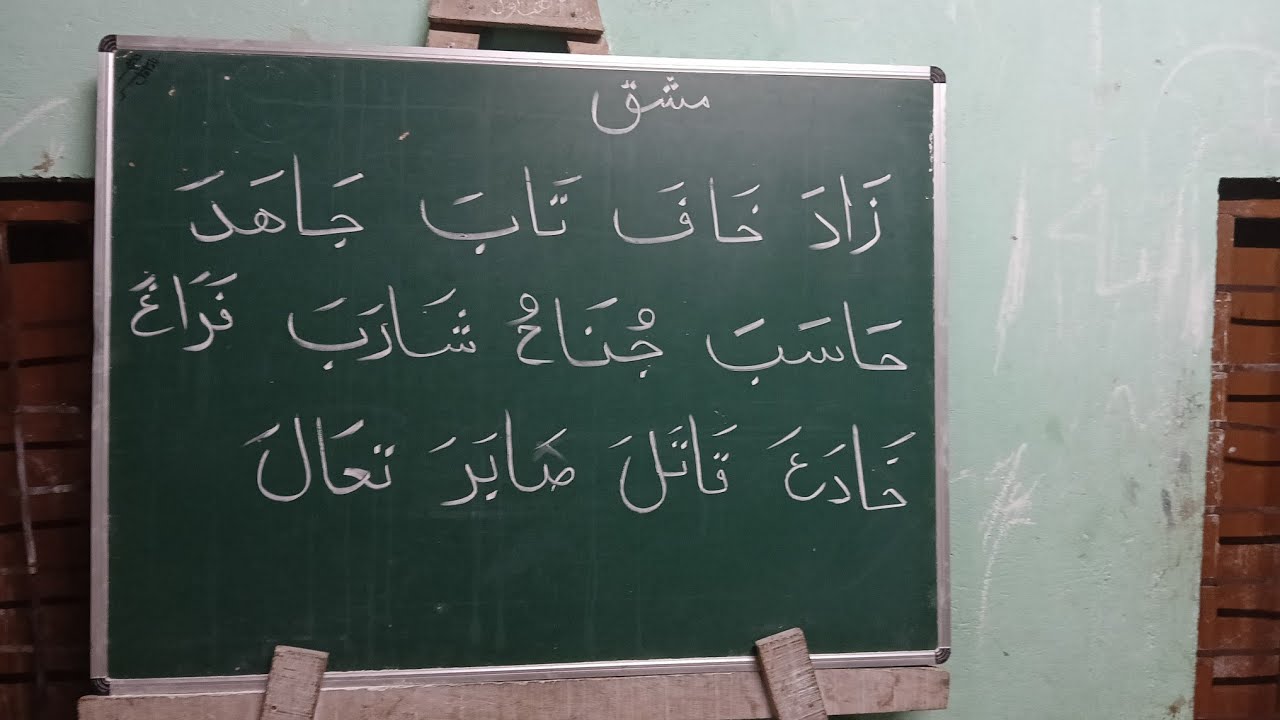 مشق
زَادَ خَافَ تَابَ جَاهَدَ
حَاسَبَ جُنَاحُ شَارَبَ فَرَاغَ
خَادَعَ قَاتَلَ صَابَرَ تعَالَ